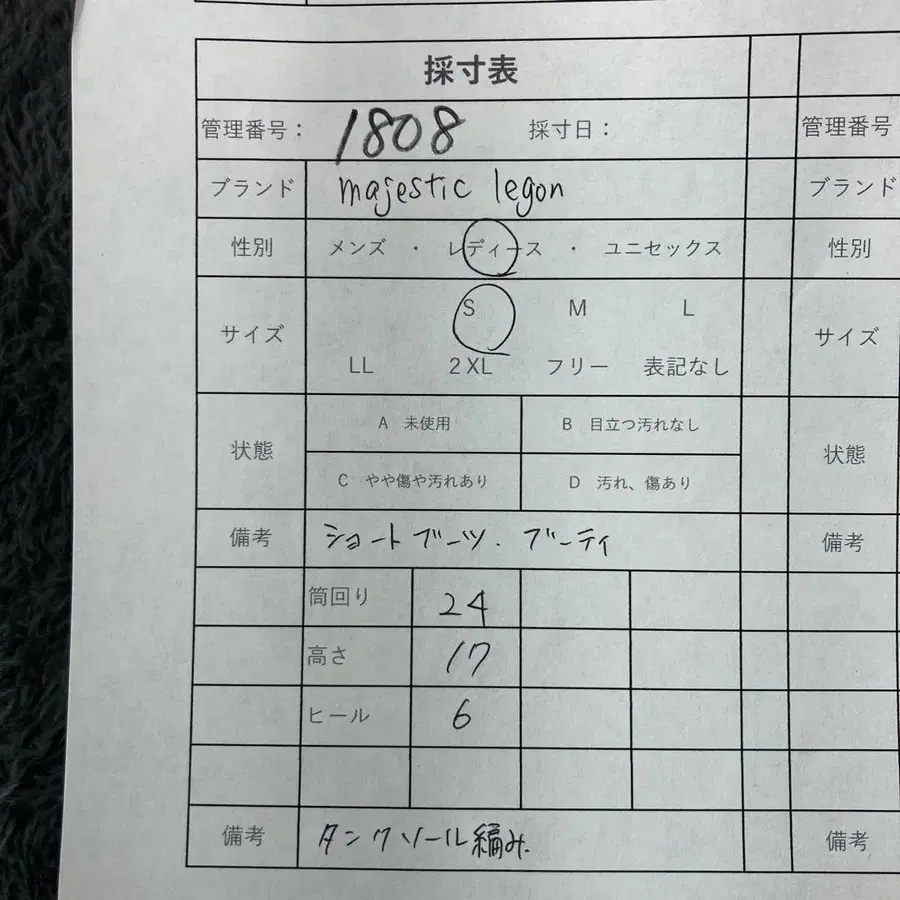 採寸表
管理番号： 1808 採寸日：
ブランド majestic legon
性別 メンズ ・ レディース ・ ユニセックス
サイズ S M L
LL 2XL フリー 表記なし
状態 A 未使用 B 目立つ汚れなし
C やや傷や汚れあり D 汚れ、傷あり
備考 ショートブーツ．ブーティ
筒回り 24
高さ 17
ヒール 6
備考 タンクソール編み
管理番号
ブランド
性別
サイズ
状態
備考
備考